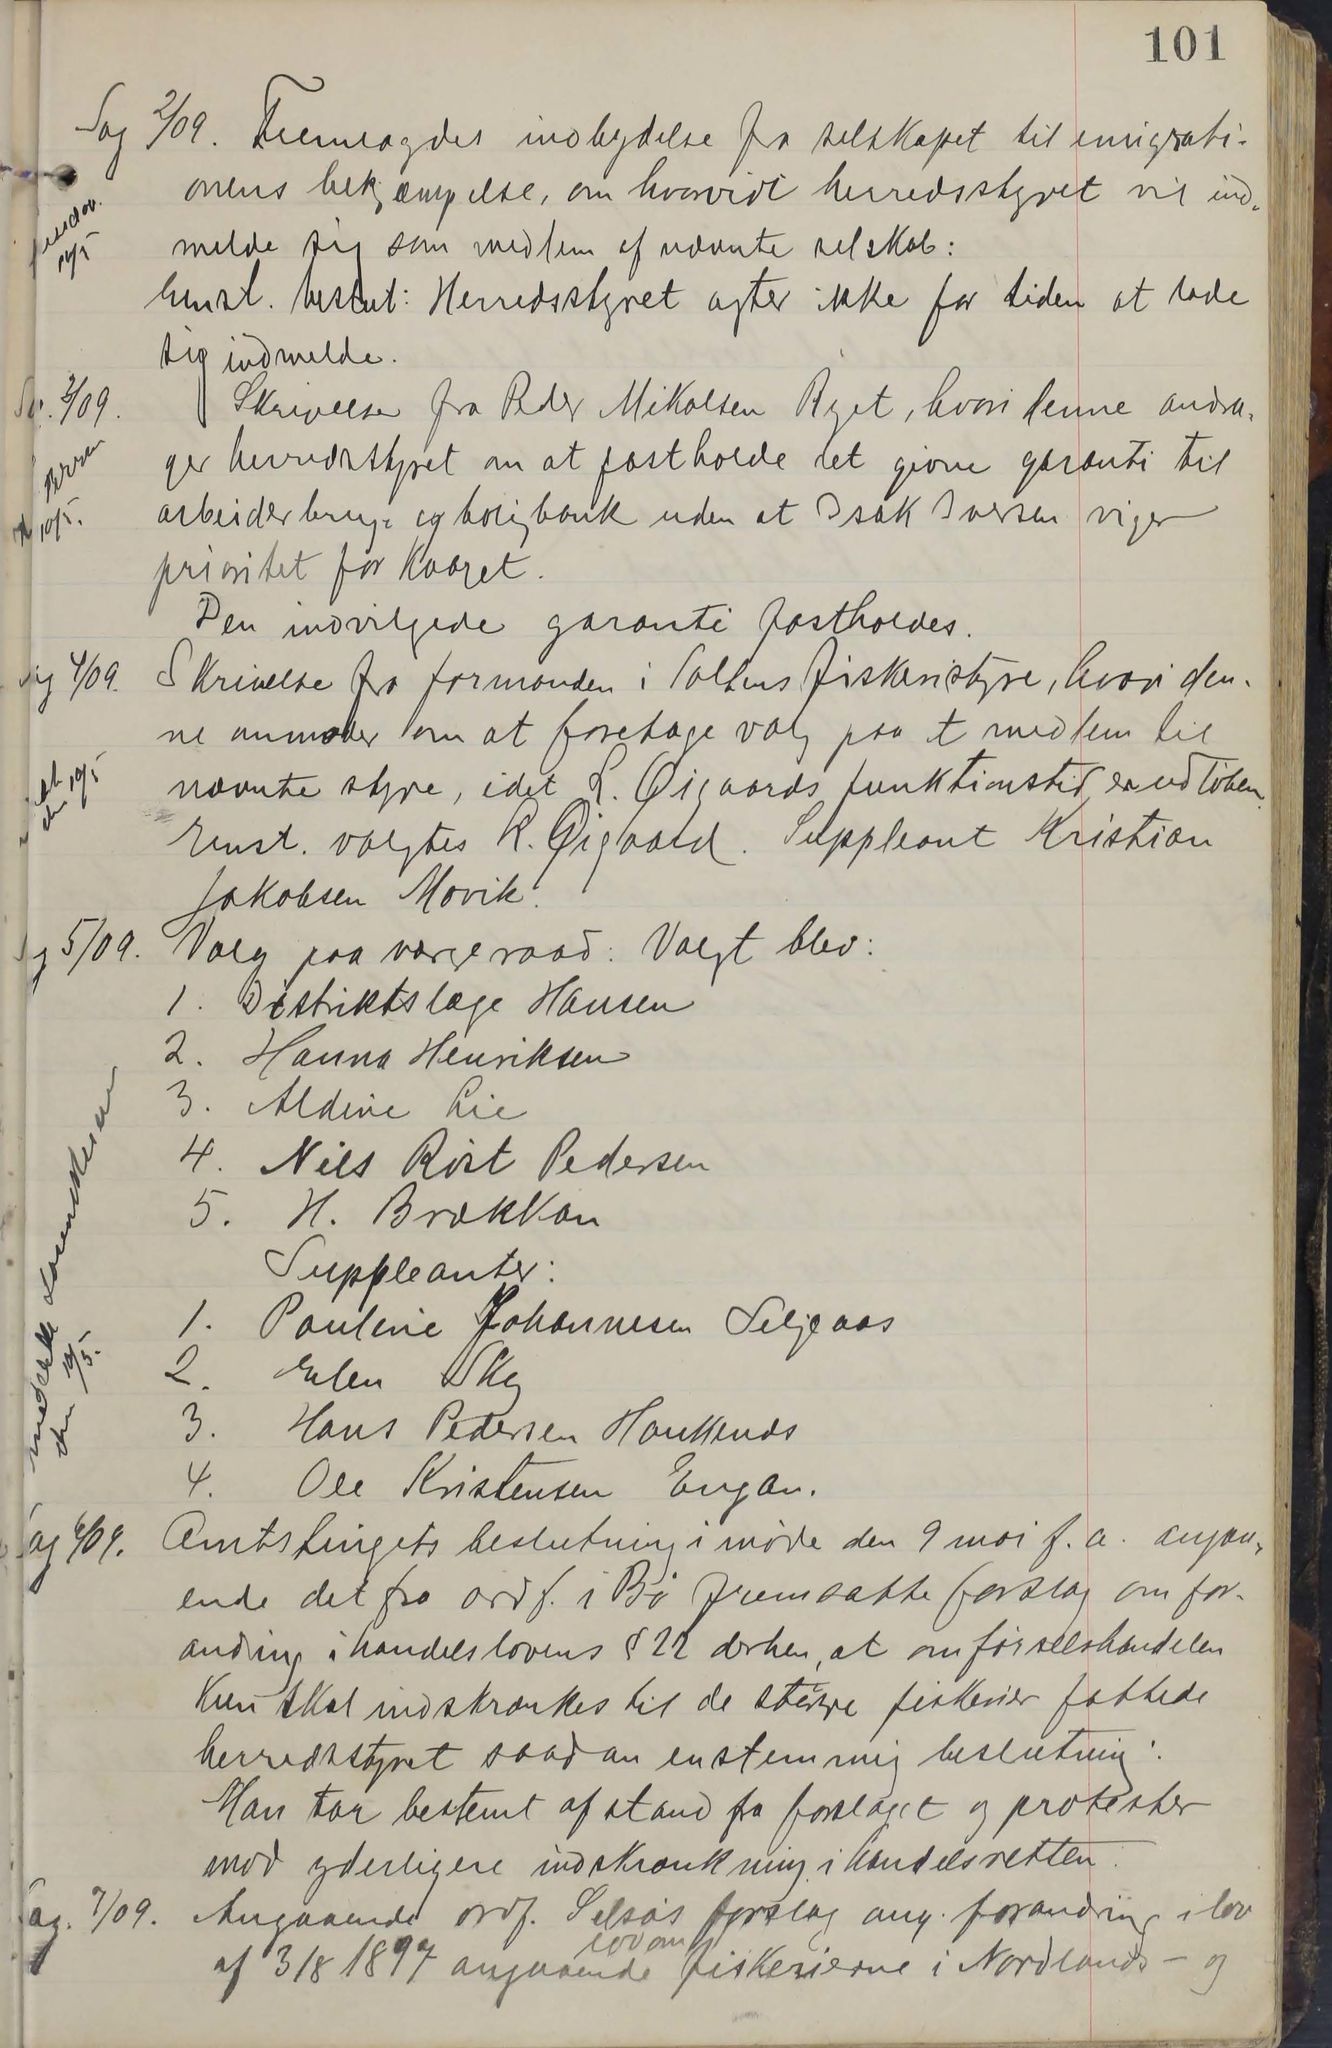 101
Sag 2/09. Fremlagdes indbydelse fra selskapet til emigrati-
onens bekjæmpelse, om hvorvidt herredsstyret vil ind-
melde sig som medlem af nævnte selskab:
Enst. beslut: Herredsstyret agter ikke for tiden at lade
sig indmelde.
3/09. Skrivelse fra Peder Mikalsen Ryet, hvori denne andra-
ger herredsstyret om at fastholde det givne garanti til
arbeiderbrug- og boligbank uden at Isak Iversen viger
prioritet for kaaret.
Den indvilgede garanti fastholdes.
Sag 4/09. Skrivelse fra formanden i Saltens fiskeristyre, hvori den-
ne anmoder om at foretage valg paa et medlem til
nævnte styre, idet R. Øigaards funktionstid er udløben.
Enst. valgtes R. Øigaard. Suppleant Kristian
Jakobsen Movik.
Sag 5/09. Valg paa værgeraad: Valgt blev:
1. Distriktslæge Hansen
2. Hanna Henriksen
3. Aldine Lie
4. Niels Røst Pedersen
5. H. Brækkan
Suppleanter:
1. Pauline Johannesen Seljeaas
2. Elen Sky
3. Hans Pedersen Haukenæs
4. Ole Kristensen Engan.
den 10/5.
Sag 6/09. Amtstingets beslutning i møde den 9 mai f. a. angaa-
ende det fra ordf. i Bø fremsatte forslag om for-
andring i handelslovens § 22 derhen, at omførselshandelen
kun skal indskrænkes til de større fiskerier fattede
herredsstyret saadan enstemmig beslutning:
Man tar bestemt afstand fra forslaget og protester
mod yderligere indskrænkning i handelsretten.
Sag. 7/09. Angaaende ordf. Selsøs forslag ang. forandring i lov
af 3/8 1897 angaaende fiskerierne i Nordlands- og